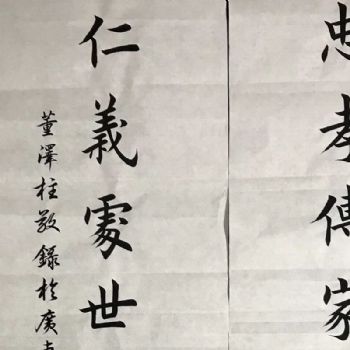 忠孝傳家
仁義處世
董澤柱敬錄於廣